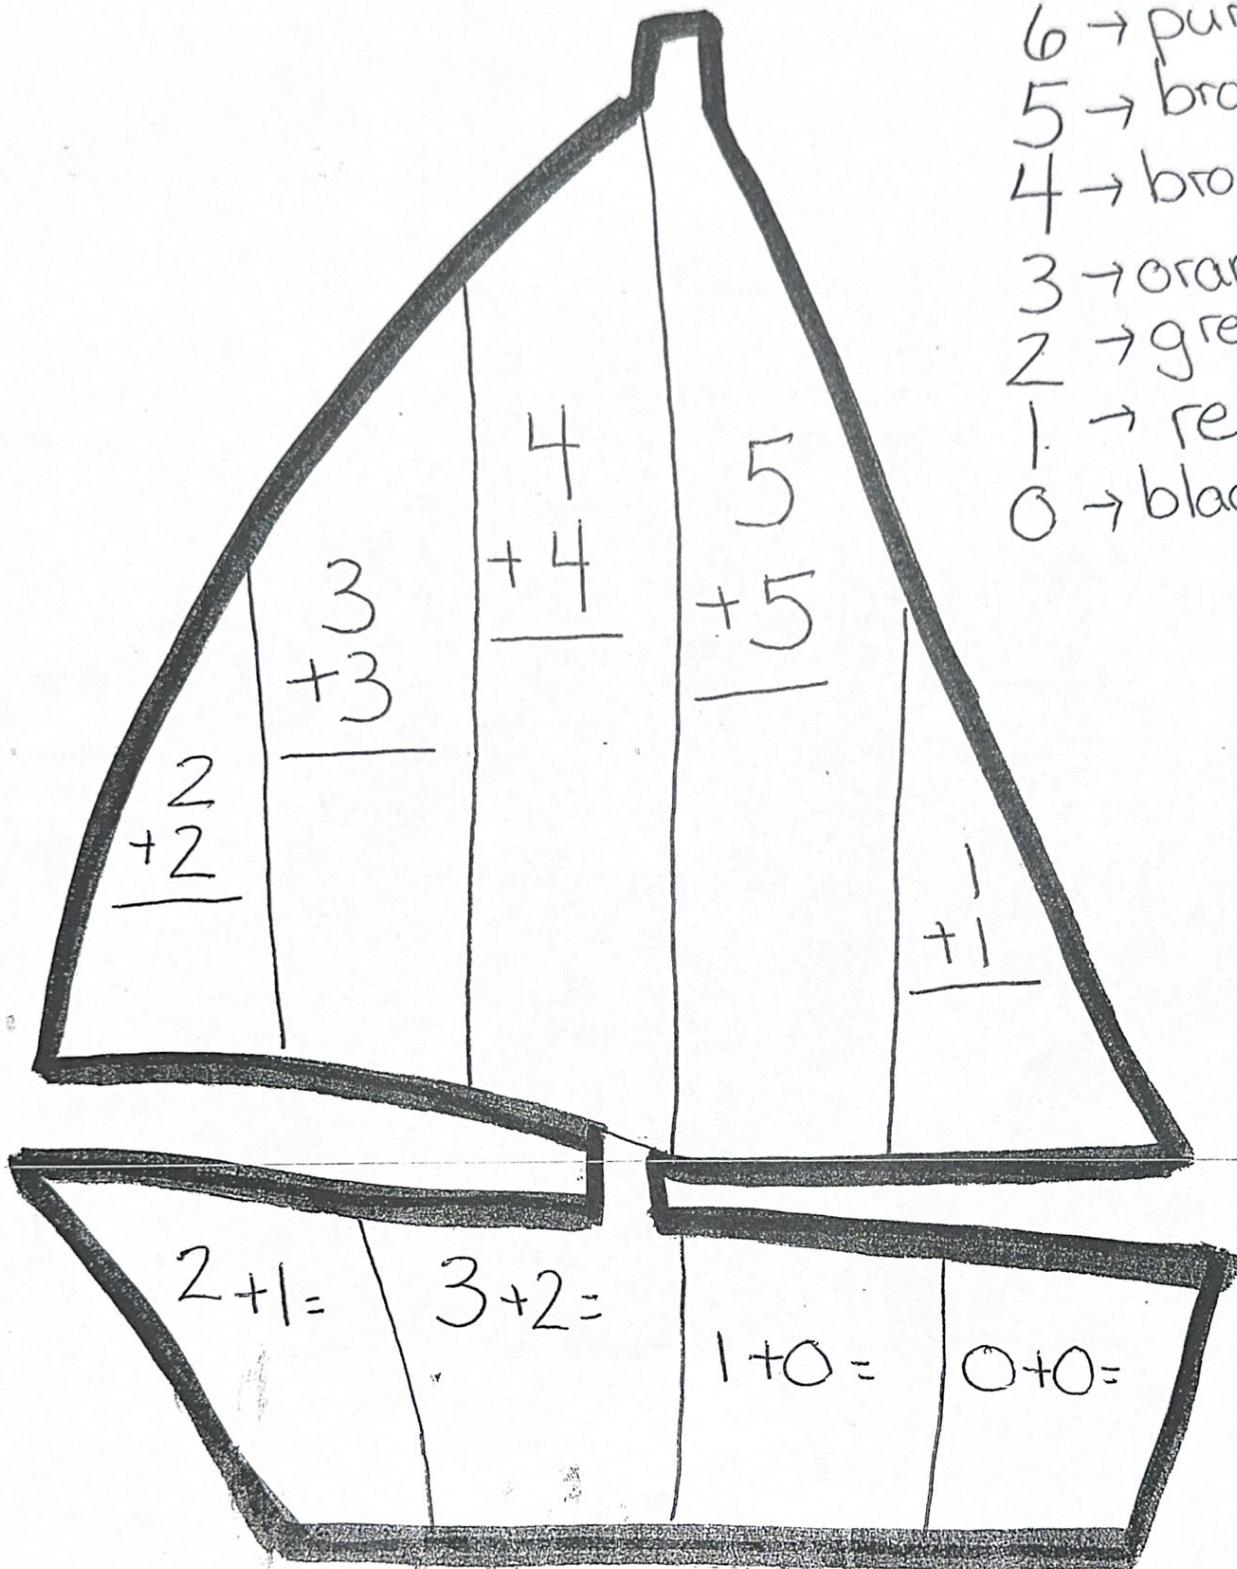 6 → pur
5 → bro
4 → bro
3 → oran
2 → gre
1 → re
0 → blac
4
+ 4
5
+ 5
3
+3
2
+2
1
+1
2+1=
3+2=
1+0=
0+0=